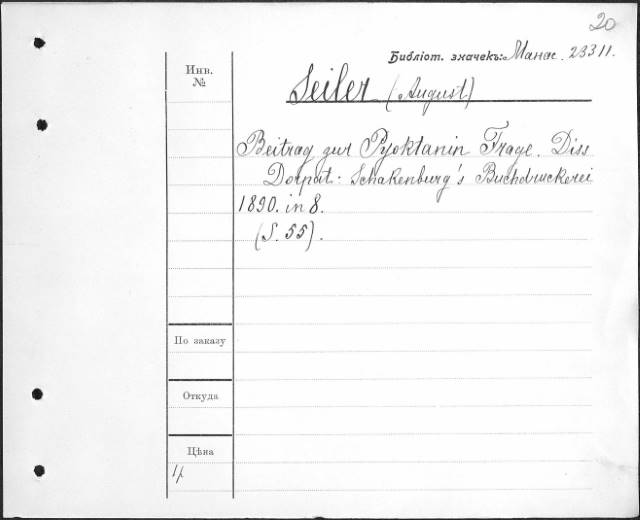 20
Библіот. значекъ: Манас. 23311.
Инв. №
Seiler (August)
Beitrag zur Pyoktanin Frage. Diss
Dorpat: Schakenburg's Buchdruckerei
1890. in 8.
(S. 55).
По заказу
Откуда
Цѣна